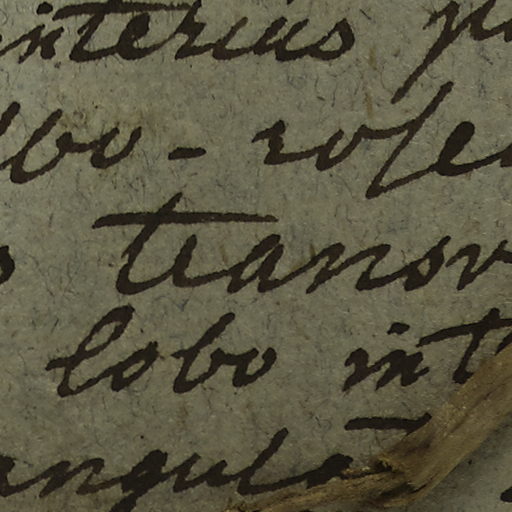 interius p
lbo-rose
s tranov
lobo int
angulō